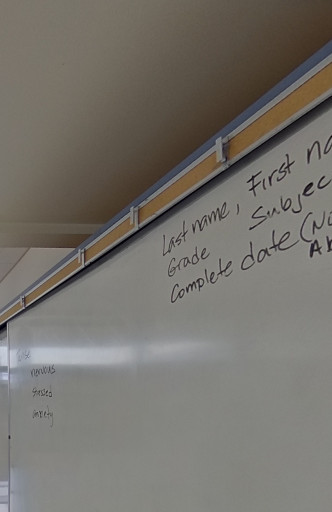 Last name, First na
Grade Subjec
Complete date (No
Ab
nervous
stressed
anxiety